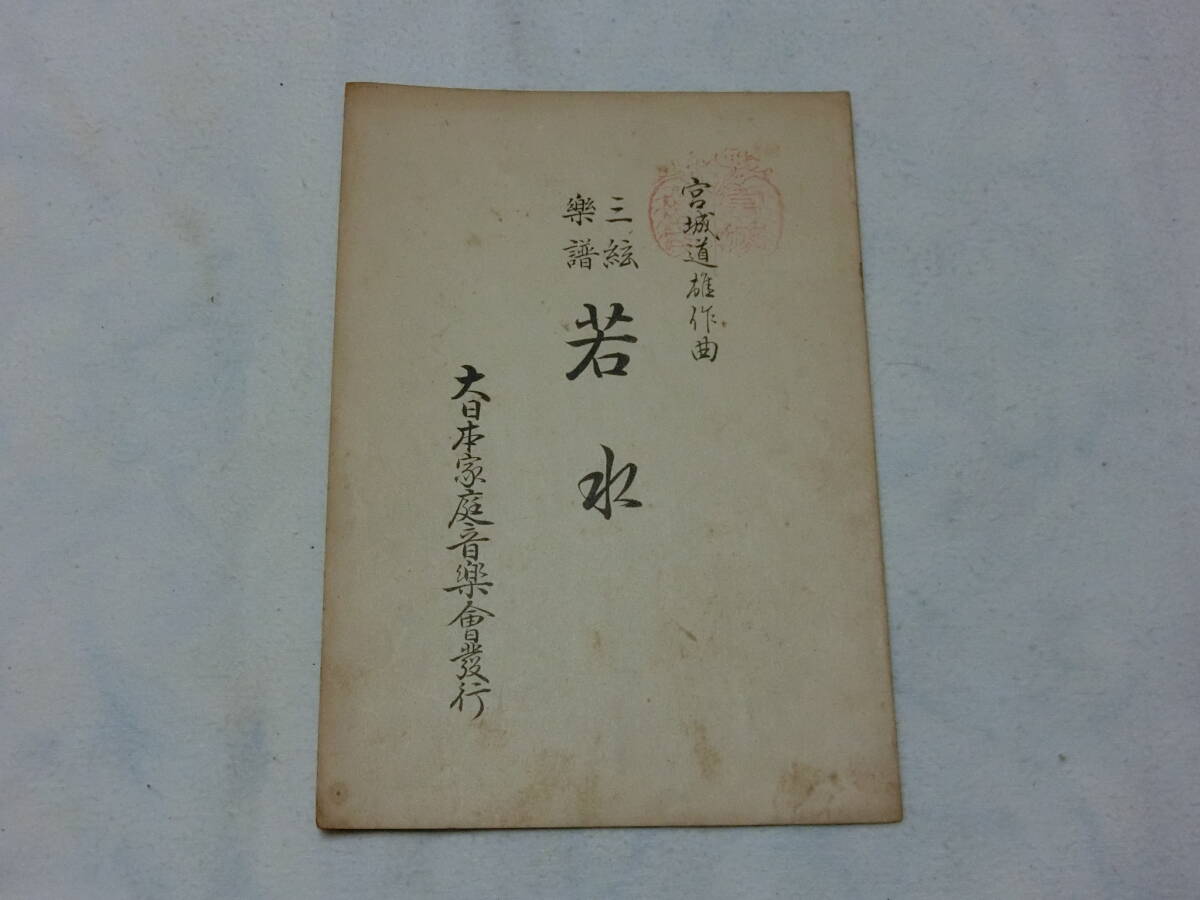 宮城道雄作曲
三絃
樂譜
若水
大日本家庭音樂會發行